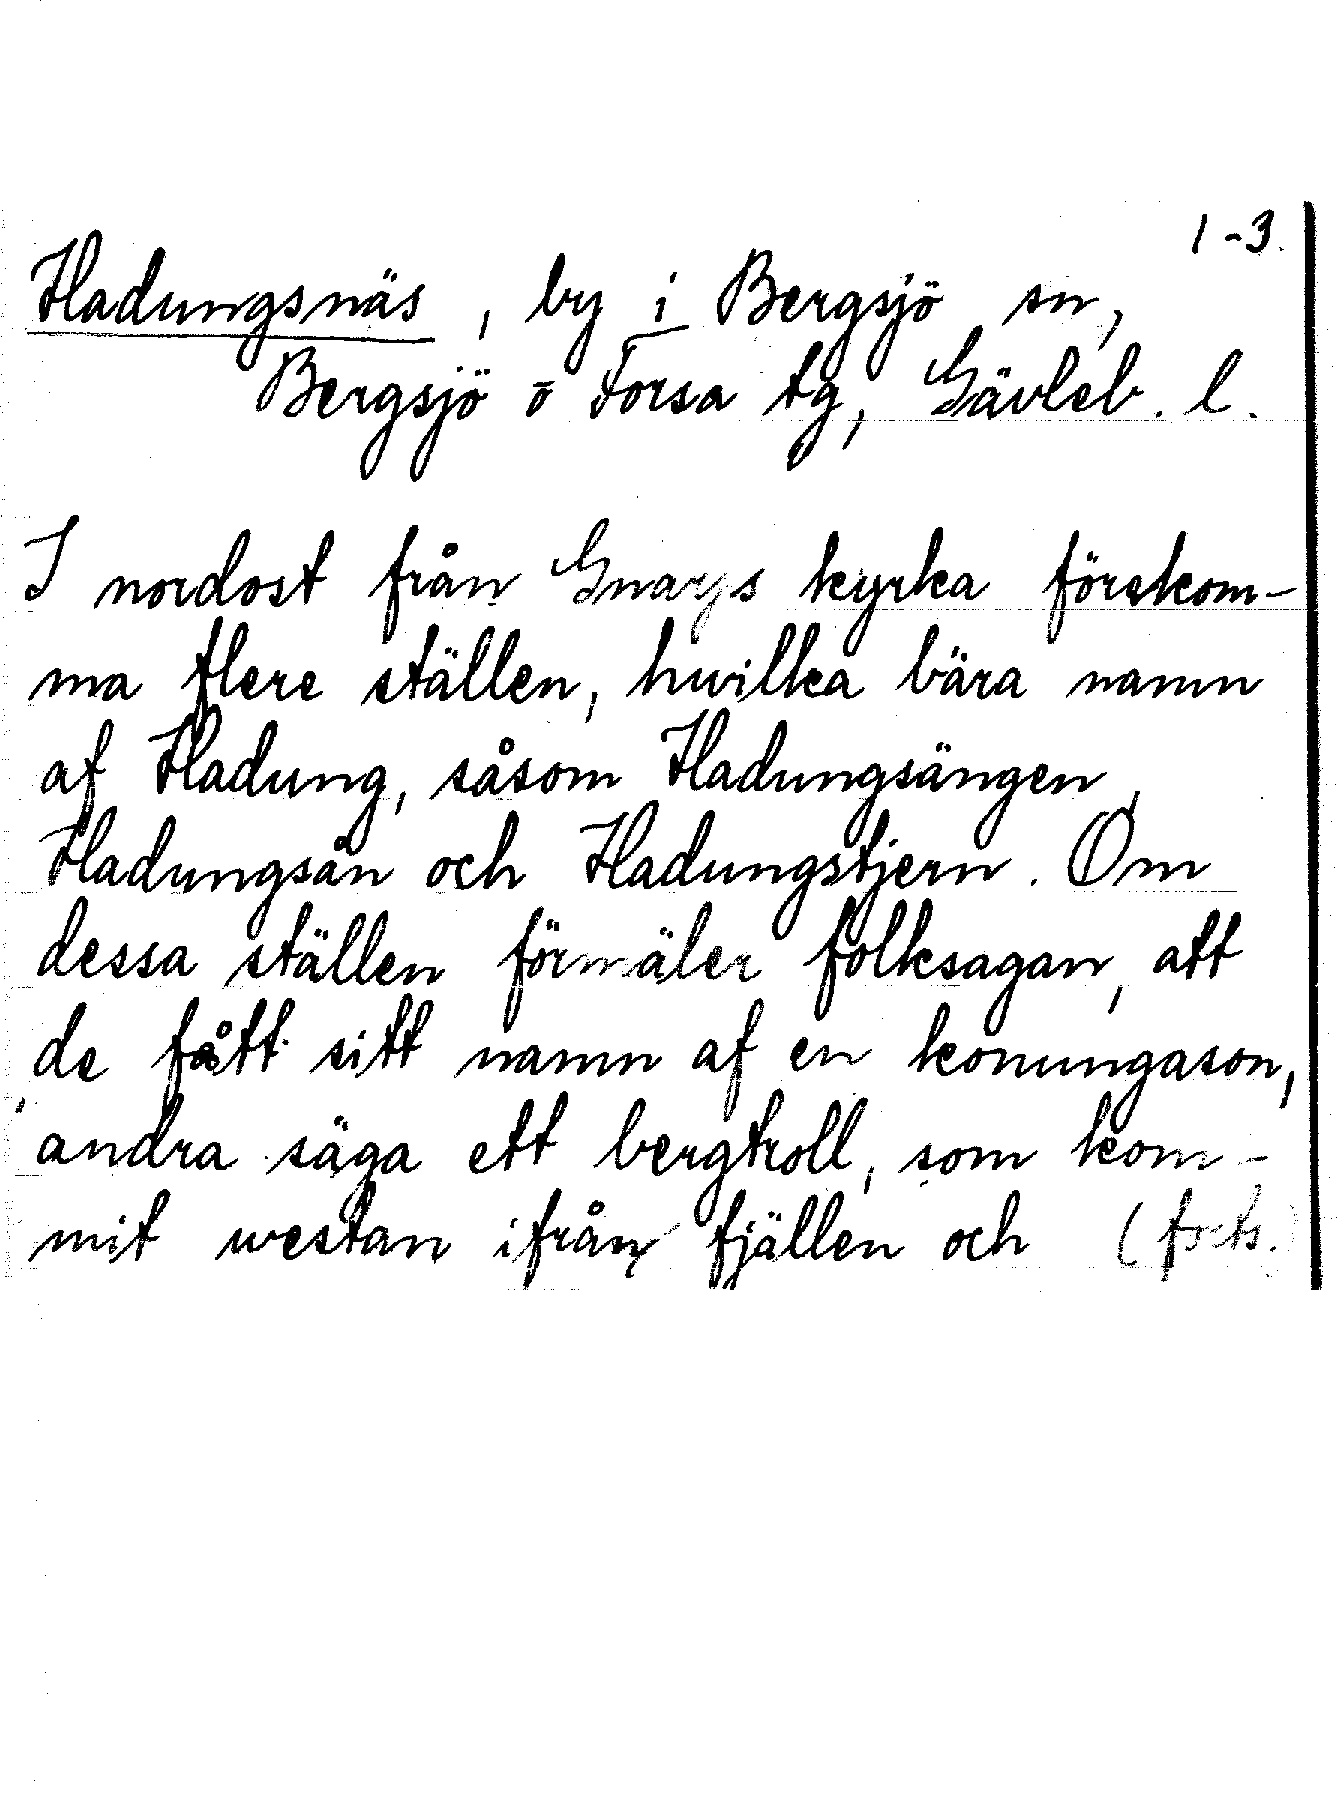 1-3.
Hadungsnäs, by i Bergsjö sn,
Bergsjö o Forsa tg, Gävleb. l.
I nordost från Gnarps kyrka förekom-
ma flere ställen, hwilka bära namn
af Hadung, såsom Hadungsängen,
Hadungsån och Hadungstjern. Om
dessa ställen förmäler folksagan, att
de fått sitt namn af en konungason,
andra säga ett bergtroll, som kom-
mit westan ifrån fjällen och (forts.)